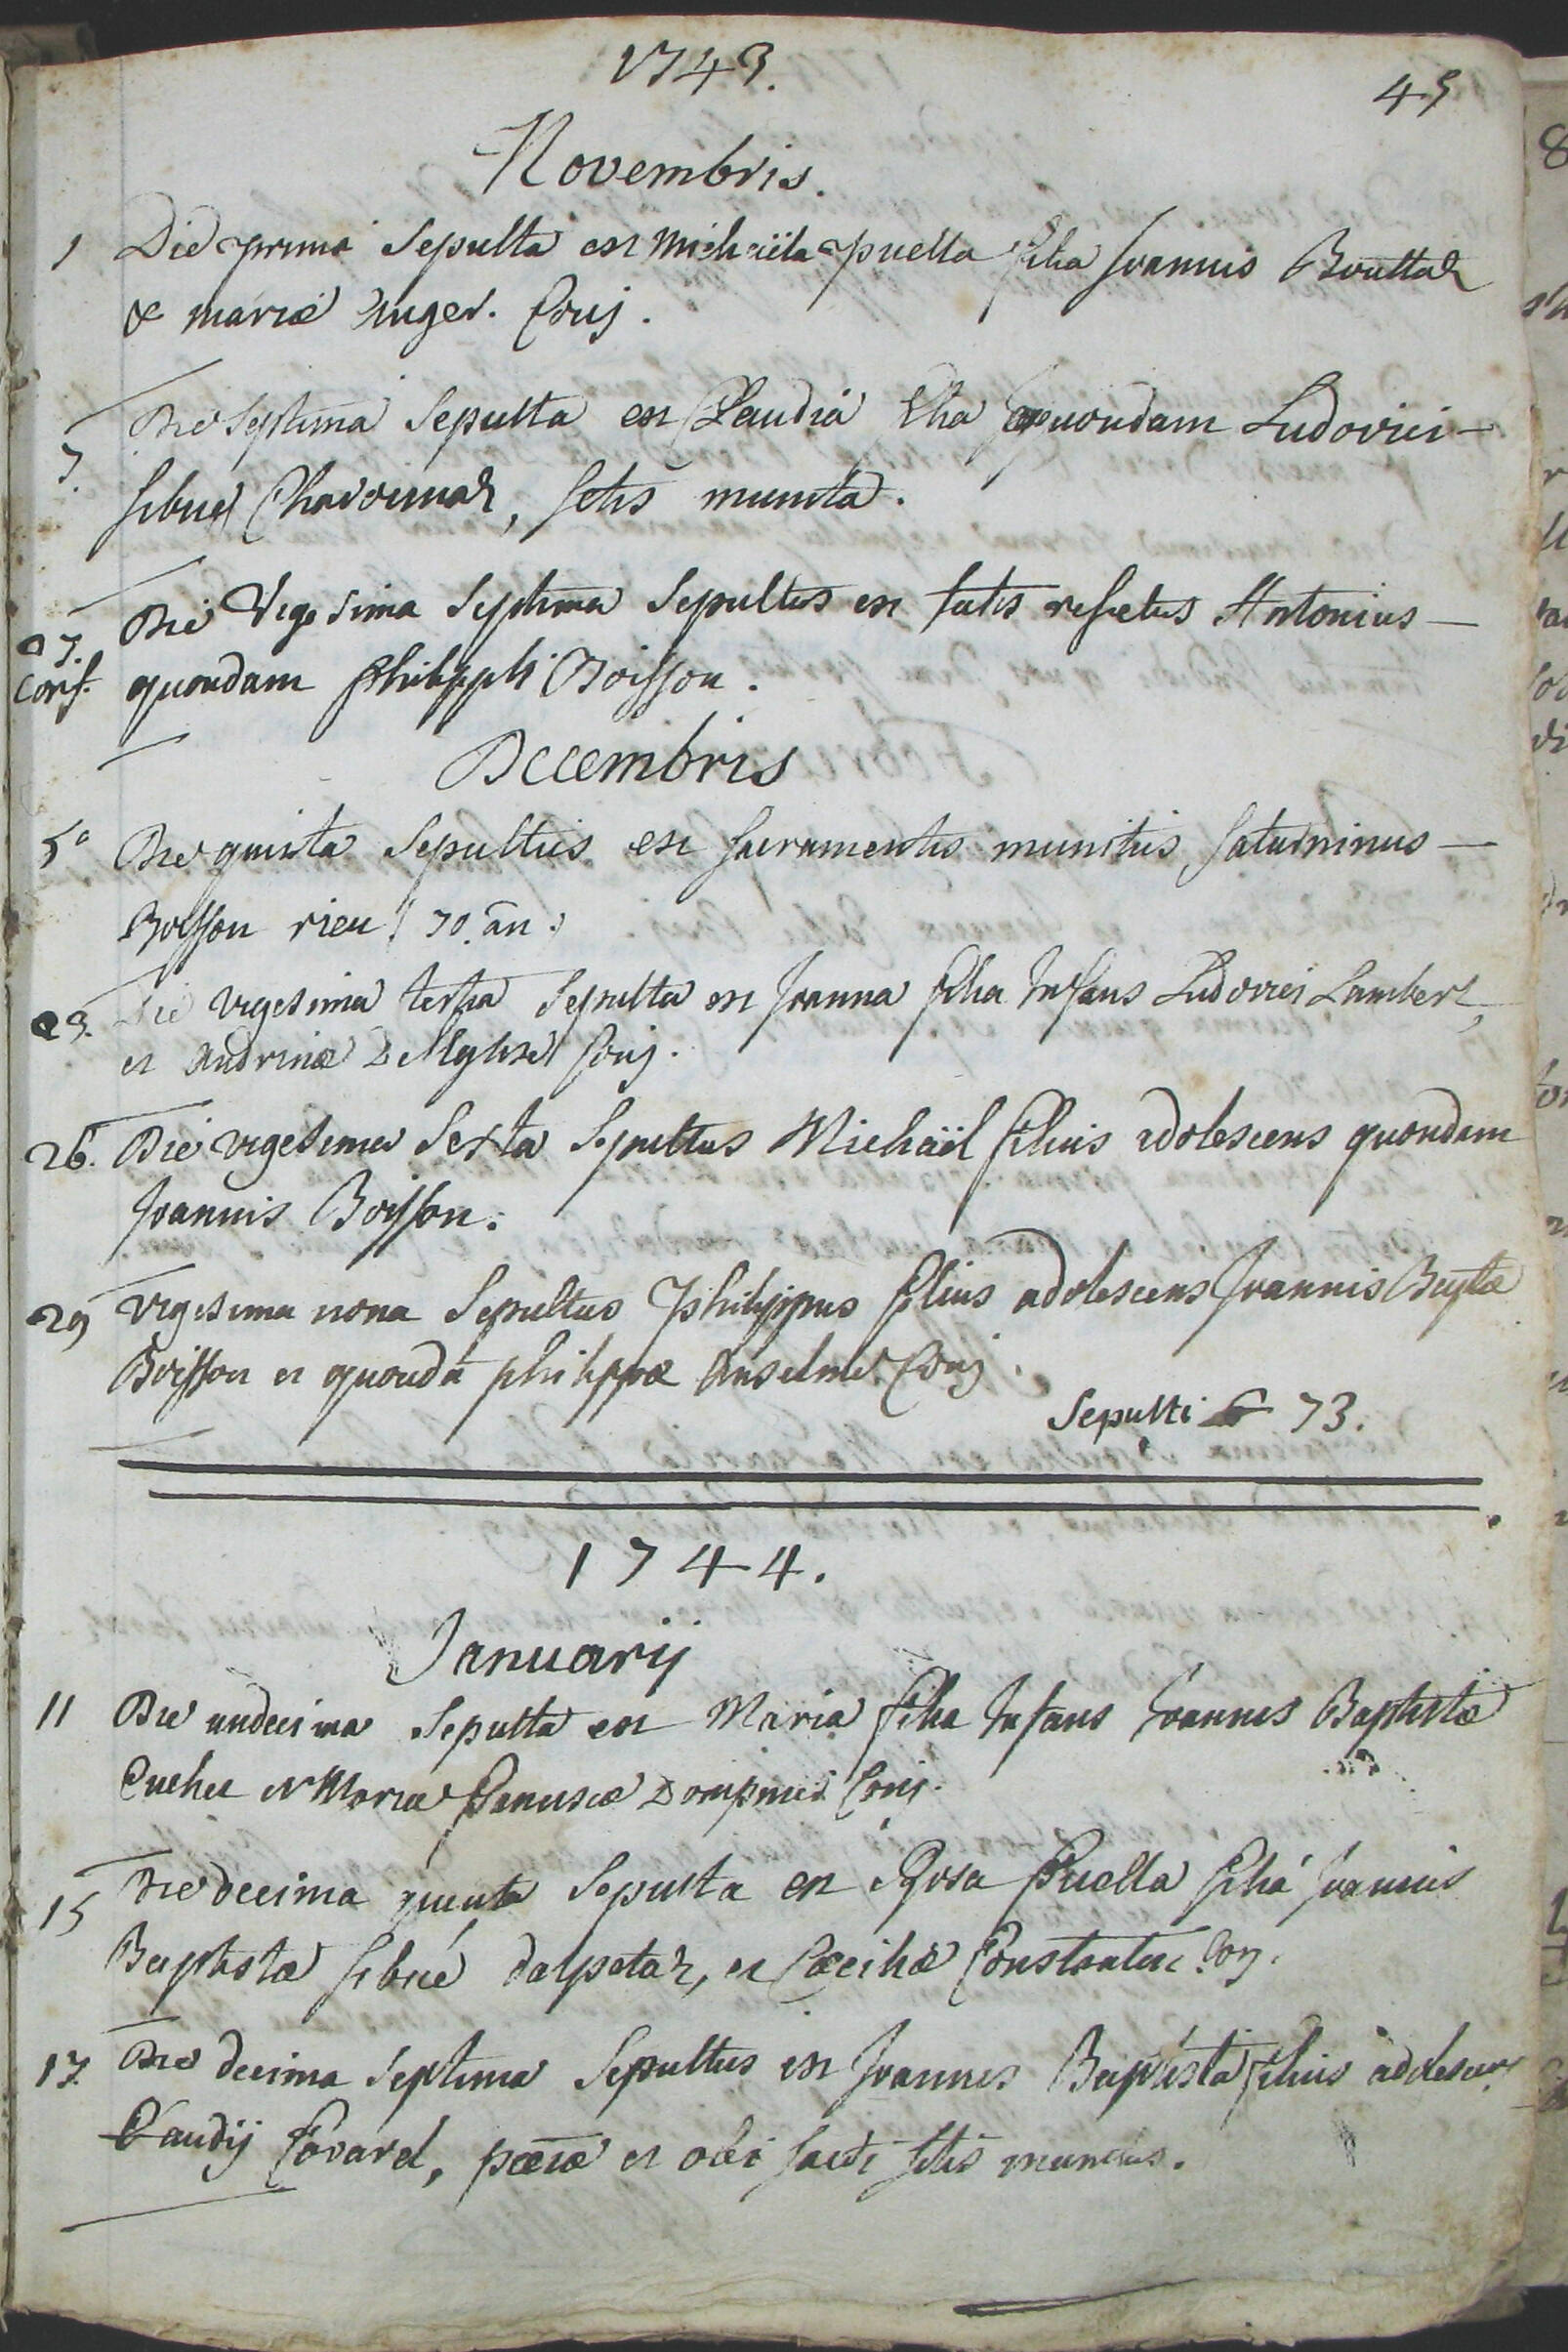 1743.
43
Novembris.
1 Die prima Sepulta est Michaëla puella filia Joannis Bouttaz
& mariæ Anger. Conj.
7. Die Septima Sepulta est Claudia filia quondam Ludovici —
sibué Chavounaz, sctis munita.
27. Die Vigesima Septima Sepultus est sctis refectus Antonius —
Conf. quondam Philippi Boisson.
Decembris
5ª Die quinta Sepultus est sacramentis munitus Saturninus —
Boisson rieu (70. an:)
23. Die vigesima tertia Sepulta est Joanna filia Infans Ludovici Lambert,
et Andrinæ Conj.
26. Die vigesima Sexta Sepultus Michaël filius adolescens quondam
Joannis Boisson.
29 vigesima nona Sepultus Philippus filius adolescens Joannis Baptæ
Boisson et quondā philippæ Anselme Conj.
Sepulti 73.
1744.
Januarij
11 Die undecima Sepulta est Maria filia Infans Joannis Baptistæ
Cuchet et Mariæ Conj.
15 Die decima quinta Sepulta est Rosa Puella filia Joannis
Baptistæ sibué dalpetaz, et Cæciliæ Constantin Conj.
17. Die decima Septima Sepultus est Joannes Baptista filius adolescens
Claudij Covarel, pœnæ et olei sacri sctis munitus.